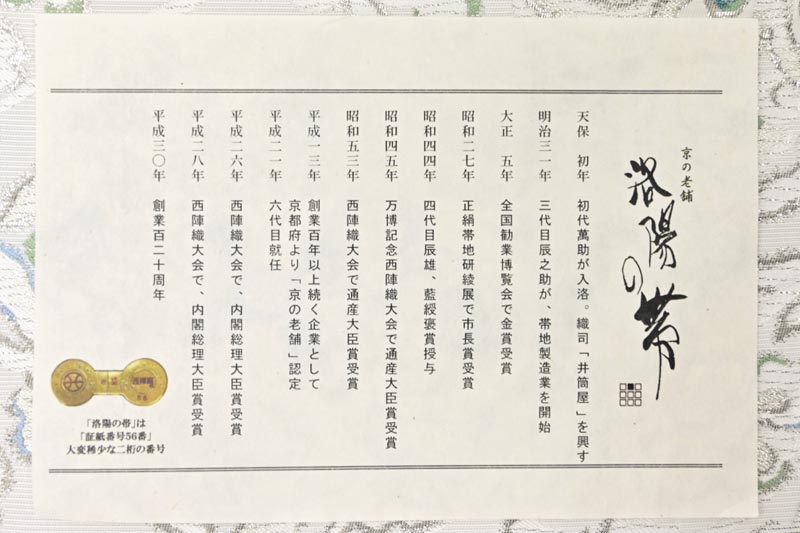 京の老舗
洛陽の帯
天保　初年　初代萬助が入洛。織司「井筒屋」を興す
明治三一年　三代目辰之助が、帯地製造業を開始
大正　五年　全国勧業博覧会で金賞受賞
昭和二七年　正絹帯地研綾展で市長賞受賞
昭和四四年　四代目辰雄、藍綬褒賞授与
昭和四五年　万博記念西陣織大会で通産大臣賞受賞
昭和五三年　西陣織大会で通産大臣賞受賞
平成一三年　創業百年以上続く企業として
京都府より「京の老舗」認定
平成二一年　六代目就任
平成二六年　西陣織大会で、内閣総理大臣賞受賞
平成二八年　西陣織大会で、内閣総理大臣賞受賞
平成三〇年　創業百二十周年
56
「洛陽の帯」は
「証紙番号56番」
大変稀少な二桁の番号